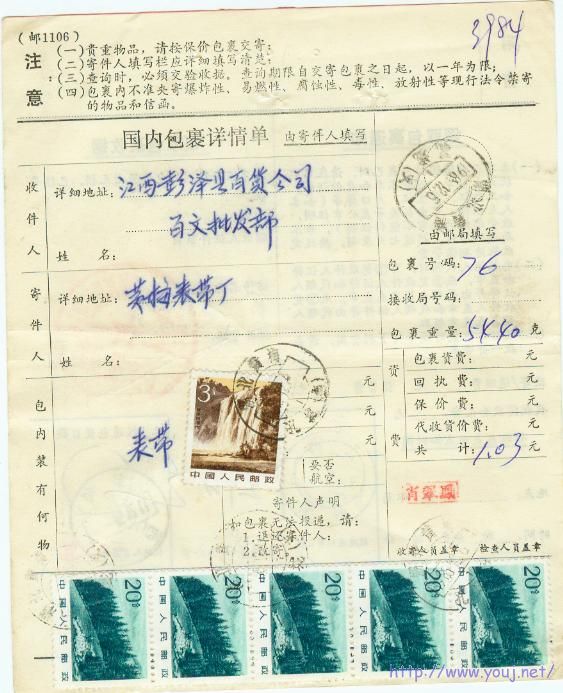 (邮1106)
3984
注意
(一)贵重物品，请按保价包裹交寄；
(二)寄件人填写栏应详细填写清楚；
(三)查询时，必须交验收据。查询期限自交寄包裹之日起，以一年为限；
(四)包裹内不准夹寄爆炸性、易燃性、腐蚀性、毒性、放射性等现行法令禁寄
的物品和信函。
国内包裹详情单 由寄件人填写
收件人
详细地址：江西彭泽县百货公司
百文批发部
姓名：
由邮局填写
包裹号码：76
接收局号码：
包裹重量：5440 克
寄件人
详细地址：黄梅表带厂
姓名：
资费
包裹资费： 元
回执费： 元
保价费： 元
代收货价费： 元
共计：1.03 元
包内装有何物
表带
元
元
要否
航空：
3分
中国人民邮政
寄件人声明
如包裹无法投递，请：
1.退还寄件人：
2.改寄
肖翠凤
收寄人员盖章 检查人员盖章
20分
中国人民邮政
20分
中国人民邮政
20分
中国人民邮政
20分
中国人民邮政
20分
中国人民邮政
http://www.youj.net/